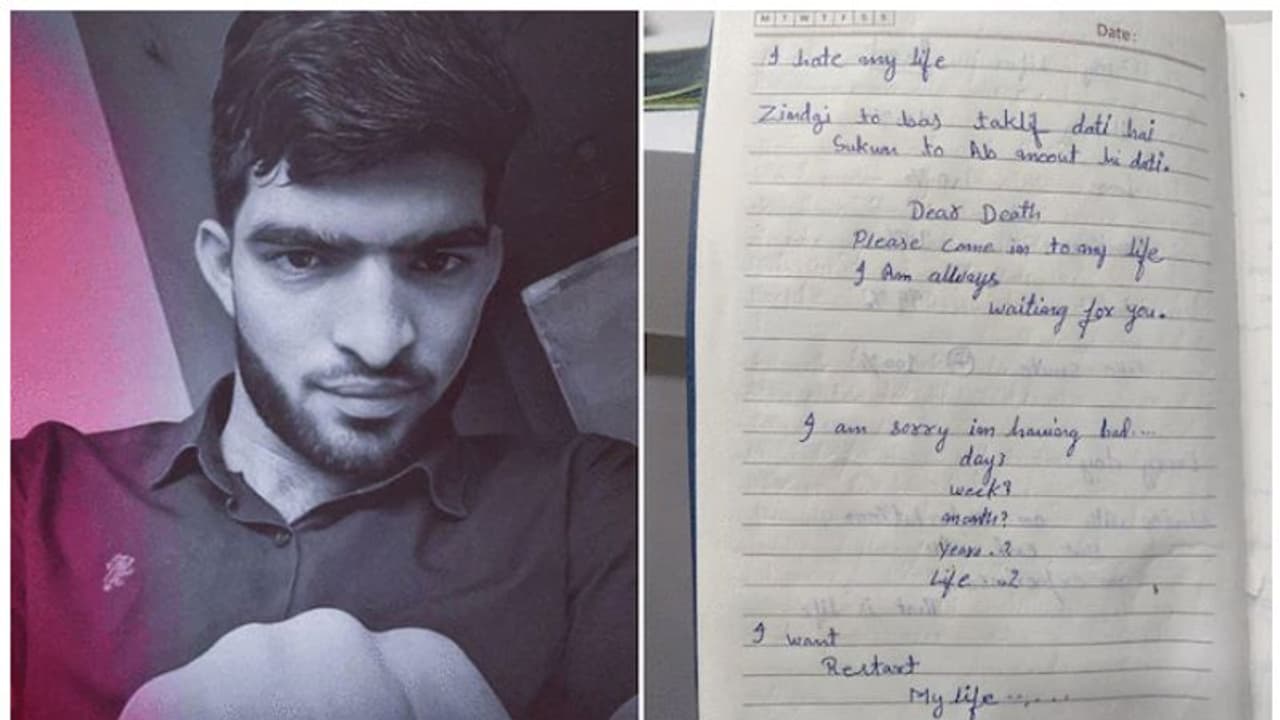 M T W T F S S
Date:
I hate my life
Zindgi to bas taklif dati hai
Sukun to Ab moout hi dati.
Dear Death
Please come in to my life
I Am allways
waiting for you.
I am sorry im having bad...
day?
week?
month?
years.?
Life ..?
I want
Restart
My life ........